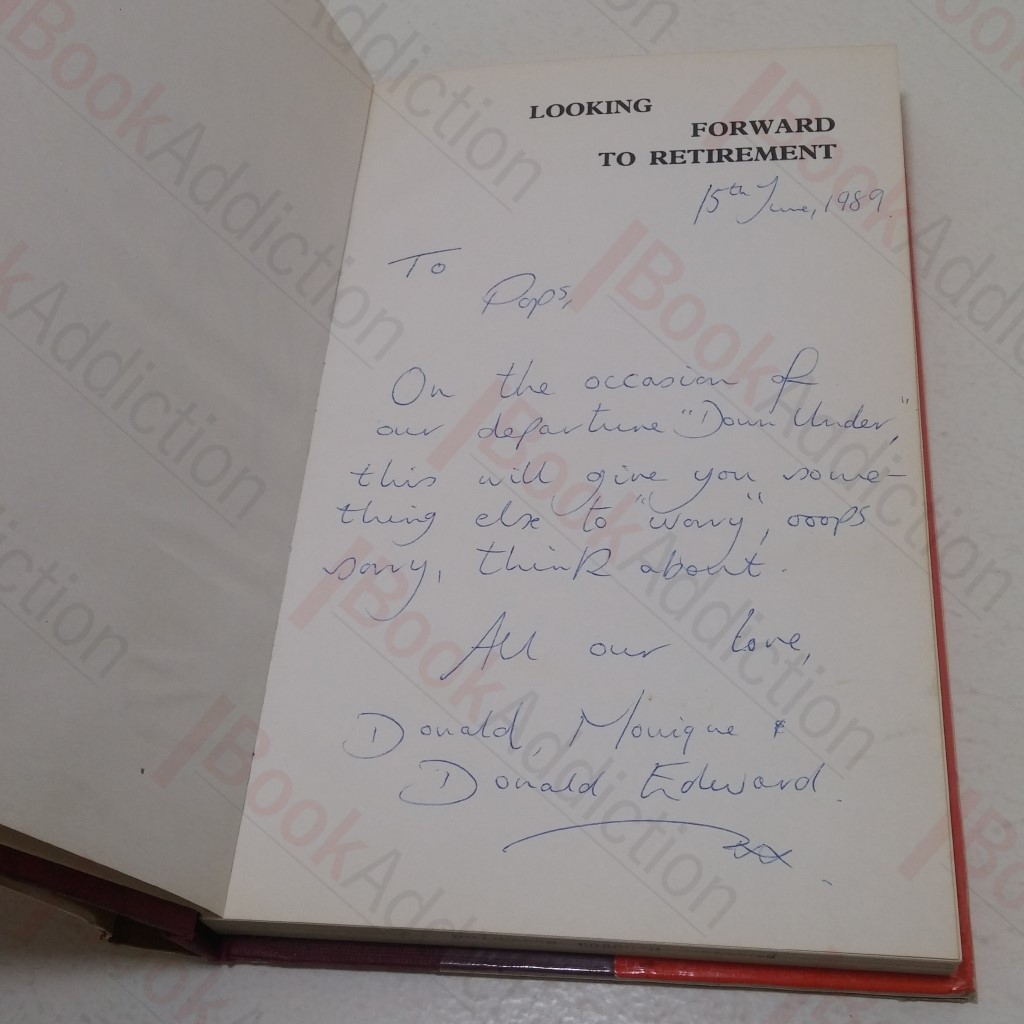 LOOKING
FORWARD
TO RETIREMENT
15th June, 1989.
To
Pops,
On the occasion of
our departure "Down Under",
this will give you some-
thing else to "worry", ooops
sorry, think about.
All our love,
Donald, Monique &
Donald Edward.
BookAddiction